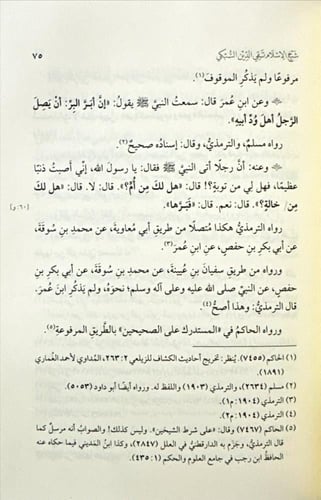 شيخ الإسلام تقي الدين السبكي ٧٥
مرفوعًا ولم يَذكُرِ الموقوفَ(١).
وعن ابنِ عُمرَ قال: سمعتُ النبيَّ ﷺ يقولُ: «إنَّ أبَرَّ البِرِّ: أنْ يَصِلَ
الرَّجلُ أهلَ وُدِّ أبيهِ».
رواه مسلمٌ، والترمذيُّ، وقال: إسنادُه صحيحٌ(٢).
وعنه: أنَّ رجلًا أتى النبيَّ ﷺ فقال: يا رسولَ اللهِ، إنِّي أصبتُ ذنبًا
عظيمًا، فهل لِي مِن توبةٍ؟! قال: «هل لكَ مِن أُمٍّ؟». قال: لا. قال: «هل لكَ
مِن/ خالةٍ؟». قال: نعم. قال: «فَبَرَّها». [٦٠:و]
رواه الترمذيُّ هكذا مُتصلًا من طريقِ أبي مُعاويةَ، عن محمدِ بنِ سُوقَةَ،
عن أبي بكرِ بنِ حفصٍ، عن ابنِ عُمرَ(٣).
ورواه من طريقِ سفيانَ بنِ عُيينةَ، عن محمدِ بنِ سُوقَةَ، عن أبي بكرِ بنِ
حفصٍ، عن النبيِّ صلى الله عليه وعلى آله وسلم؛ نحوَهُ، ولم يَذكُرِ ابنَ عُمرَ.
قال الترمذيُّ: وهذا أصحُّ(٤).
ورواه الحاكمُ في «المستدركِ على الصحيحينِ» بالطَّريقِ المرفوعةِ(٥).
(١) الحاكم (٧٤٥٥). يُنظر: تخريج أحاديث الكشاف للزيلعي ٢: ٢٦٣، المُداوي لأحمد الغُماري
(١٨٩١)
(٢) مسلم (٢٦٣٤)، والترمذي (١٩٠٣) واللفظ له. ورواه أيضًا أبو داود (٥٠٥٣)
(٣) الترمذي (١٩٠٤: م١)
(٤) الترمذي (١٩٠٤: م٢).
(٥) الحاكم (٧٤٦٧) وقال: «على شرط الشيخين». وليس كذلك! والصواب أنه مرسلٌ كما
قال الترمذيُّ، وجَزَم به الدارقطنيُّ في العلل (٢٨٤٧)، وكذا ابنُ المَديني فيما حكاه عنه
الحافظُ ابن رجب في جامع العلوم والحكم (١: ٤٣٥)